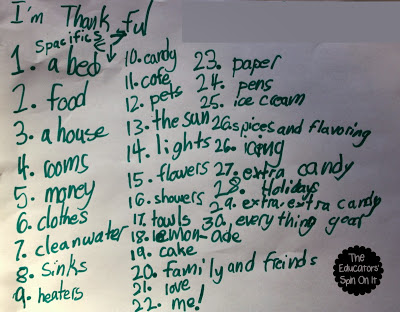 I'm Thank ful
Spacifics
1. a bed
2. food
3. a house
4. rooms
5. money
6. clothes
7. cleanwater
8. sinks
9. heaters
10. candy
11. cofe
12. pets
13. the sun
14. lights
15. flowers
16. showers
17. towls
18. lemon-ade
19. cake
20. family and freinds
21. love
22. me!
23. paper
24. pens
25. ice cream
26. spices and flavoring
26. icing
27. extra candy
28. Holidays
29. extra extra candy
30. everything year
The
Educators'
Spin On It